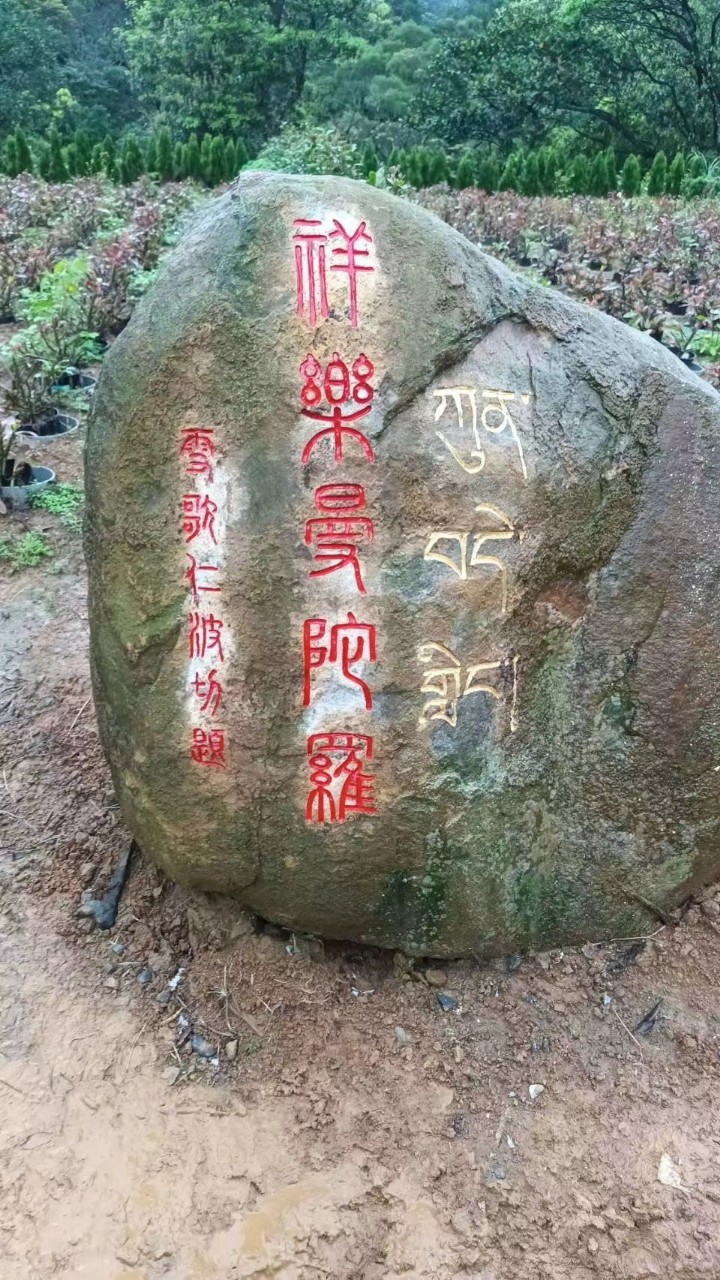 ཀུན་
བདེ་
གླིང་།
祥樂曼陀羅
雪歌仁波切題